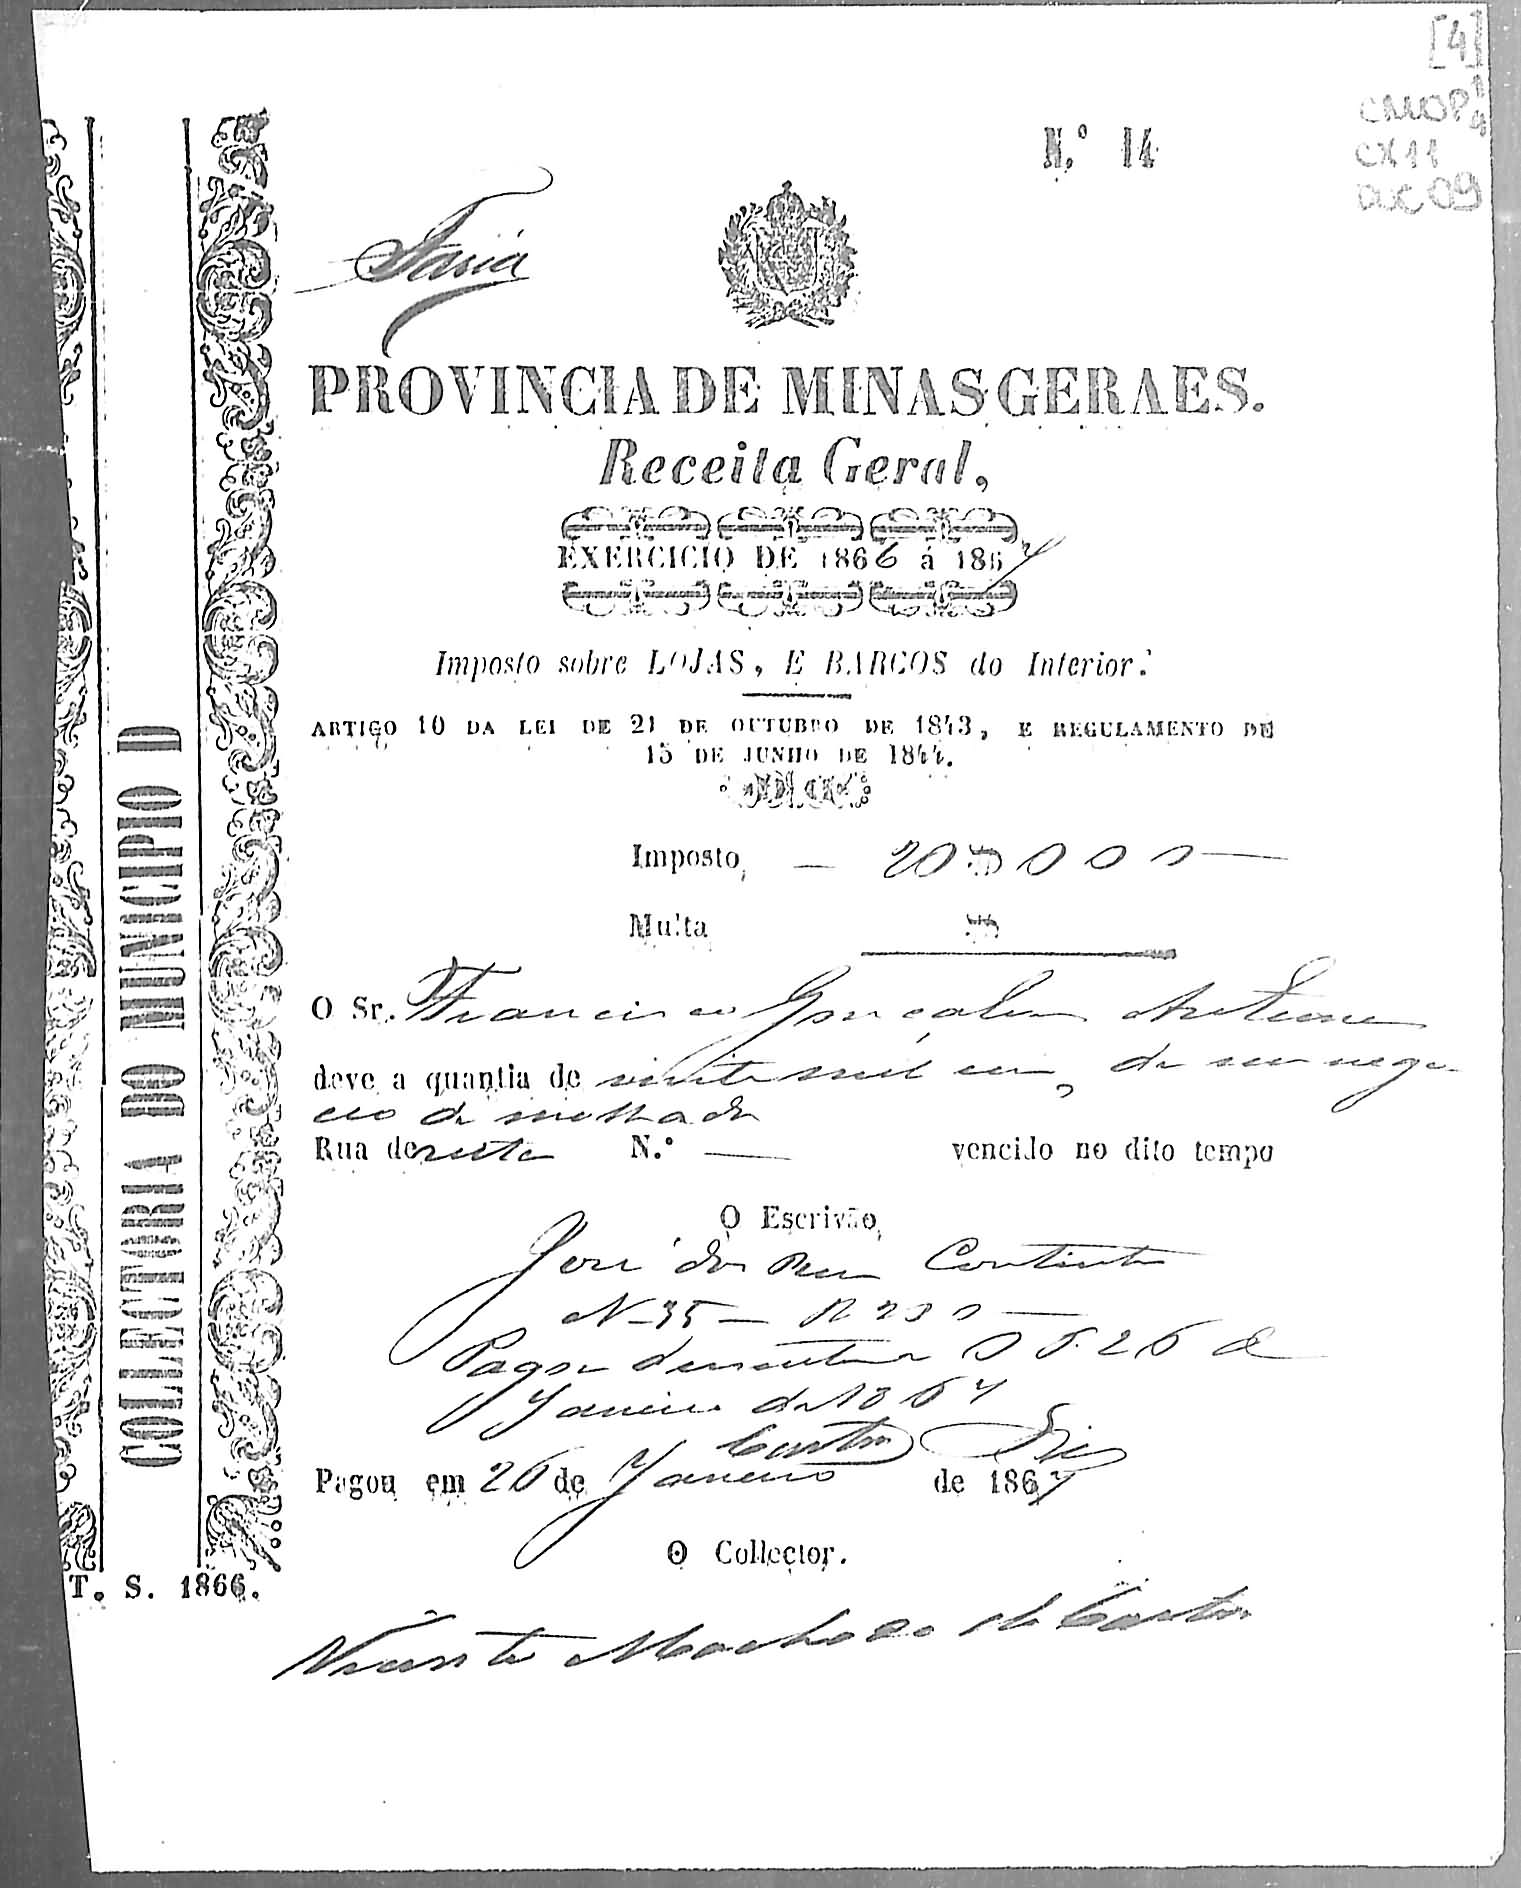 [4]
CMOP
CX11
DOC 09
N.º 14
Faria
PROVINCIA DE MINAS GERAES.
Receita Geral,
EXERCICIO DE 1866 á 1867
Imposto sobre LOJAS, E BARCOS do Interior.
ARTIGO 10 DA LEI DE 21 DE OUTUBRO DE 1843, E REGULAMENTO DE
15 DE JUNHO DE 1844.
Imposto, — 20$000
Multa $
O Sr. Francisco Gonçalves
deve a quantia de vinte mil reis, de seu nego-
cio de molhados
Rua direita N.º — vencido no dito tempo
O Escrivão,
José dos Reis
N 35 — R 200
Pagou duzentos rs. 26 de
Janeiro de 1867
Castro Reis
Pagou em 26 de Janeiro de 1867
O Collector.
Vicente Machado de Castro
COLLECTORIA DO MUNICIPIO D
T. S. 1866.